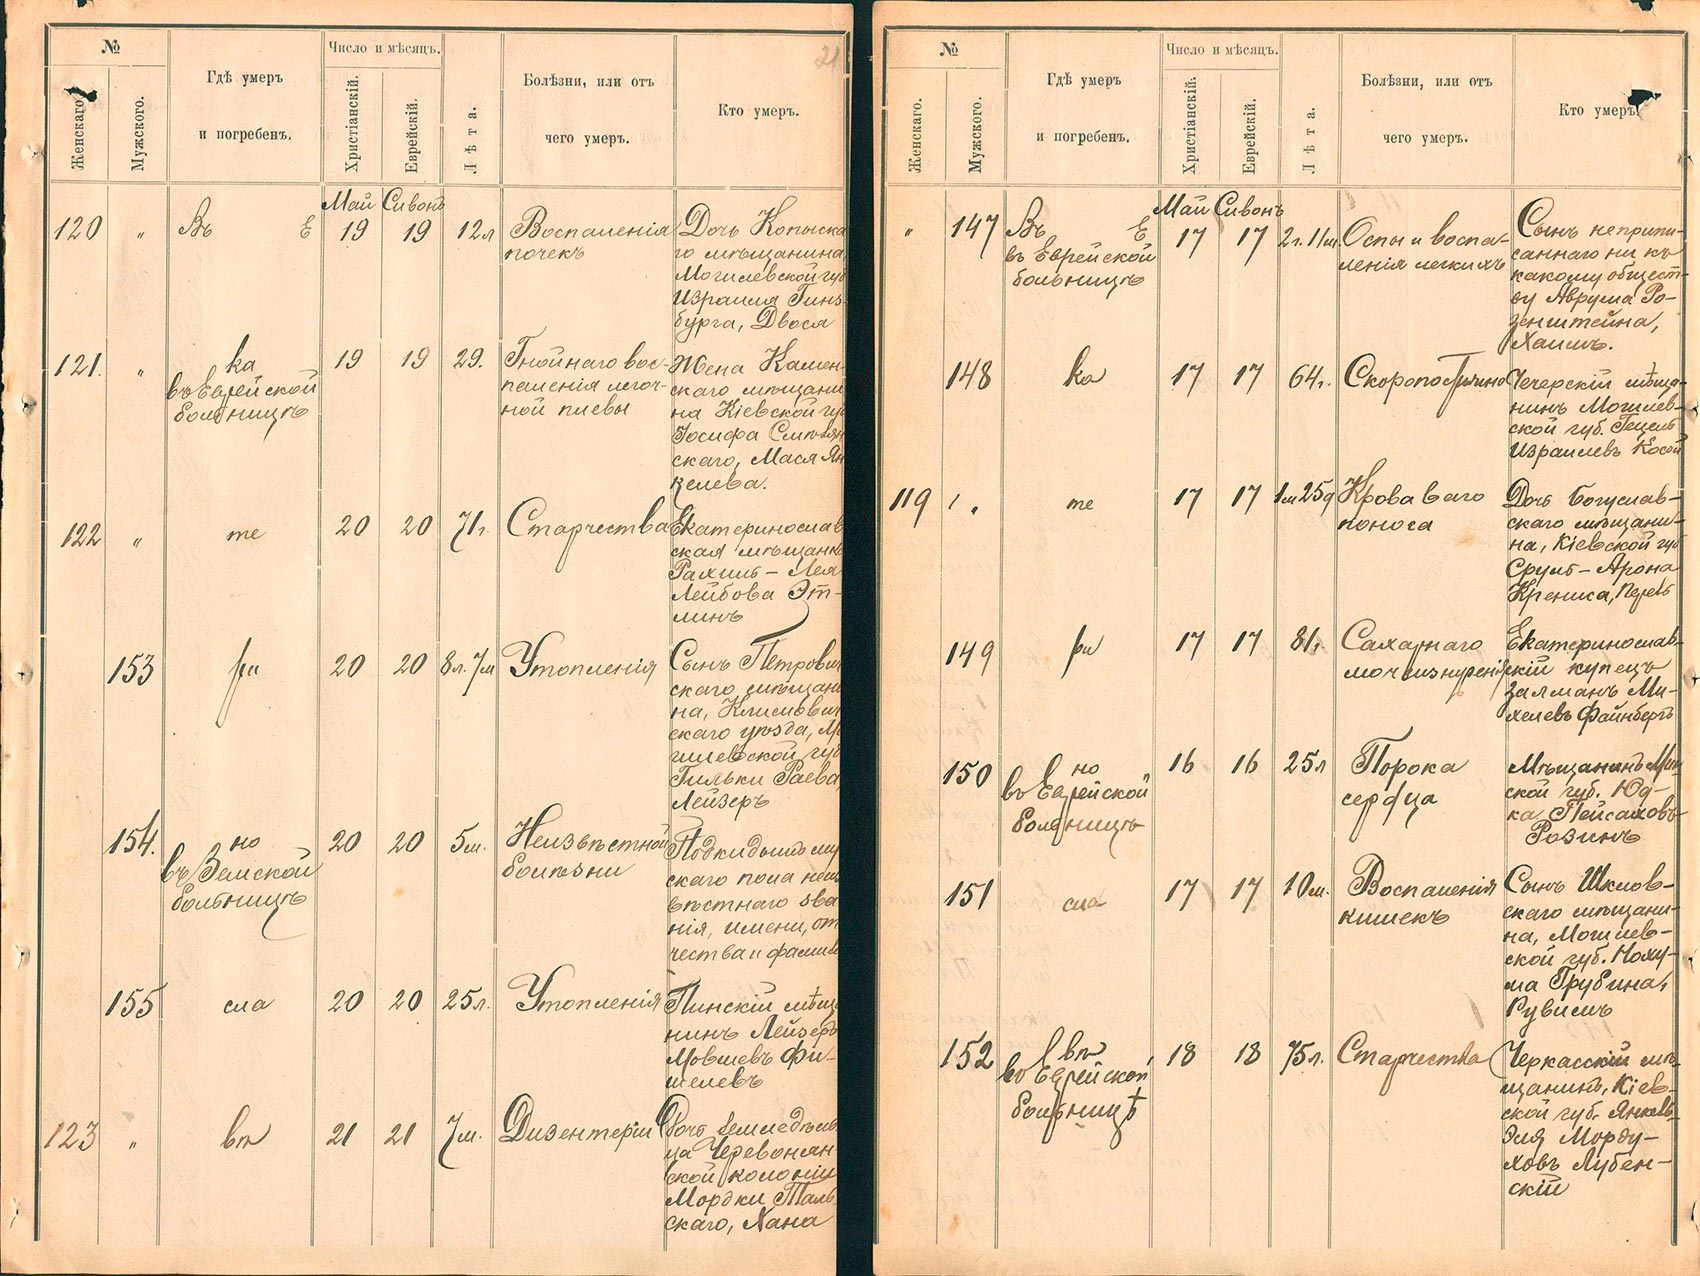 №
Женскаго.
Мужского.
Гдѣ умеръ
и погребенъ.
Число и мѣсяцъ.
Христіанскій.
Еврейскій.
Лѣта.
Болѣзни, или отъ
чего умеръ.
Кто умеръ.
21
Май Сивонъ
120 " Въ Е 19 19 12л Воспаленія
почекъ
Дочь Копыска
го мѣщанина,
Могилевской губ
Израиля Гинз
бурга, Двося
121. " ка 19 19 29. Гнойнаго вос-
въ Еврейской
больницѣ
паленія легоч-
ной плевы
Жена Камен-
скаго мѣщани
на Кіевской гу
Іосифа Смѣлян
скаго, Мася Ян
келева.
122 " те 20 20 71г Старчества
Екатеринослав
ская мѣщанк
Рахиль - Лея
Лейбова Эт-
линъ
153 ри 20 20 8л.7м Утопленія
Сынъ Петрович
скаго мѣщани
на, Климович
скаго уѣзда, Мо
гилевской гу
Гильки Раева,
Лейзеръ
154. но 20 20 5м. Неизвѣстной
въ Земской
больницѣ
болѣзни
Подкидышъ му
скаго пола неи
вѣстнаго зва
нія, имени, от
чества и фамил
155 сла 20 20 25л. Утопленія
Пинскій мѣща
нинъ Лейзеръ
Мовшевъ Фи-
шелевъ
123 " вѣ 21 21 7м. Дизентеріи
Дочь Земледѣль
ца Черевонян
ской колоніи
Мордки Таль
скаго, Хана
№
Женскаго.
Мужского.
Гдѣ умеръ
и погребенъ.
Число и мѣсяцъ.
Христіанскій.
Еврейскій.
Лѣта.
Болѣзни, или отъ
чего умеръ.
Кто умеръ.
Май Сивонъ
" 147 Въ Е 17 17 2г.11м Оспы и воспа-
въ Еврейской
больницѣ
ленія легкихъ
Сынъ неприпи-
саннаго ни къ
какому общест-
ву Аврума Ро-
зенштейна,
Хаимъ.
148 ка 17 17 64г. Скоропостижно
Чечерскій мѣща-
нинъ Могилев-
ской губ. Гецель
Израилевъ Косой
119 " те 17 17 1м25д Кроваваго
поноса
Дочь Богуслав-
скаго мѣщани-
на, Кіевской губ
Сруль - Арона
Креника, Перель
149 ри 17 17 81г. Сахарнаго
мочеизнуренія
Екатеринослав-
скій купецъ
Залманъ Ми-
хелевъ Файнбергъ
150 но 16 16 25л Порока
въ Еврейской
больницѣ
сердца
Мѣщанинъ Мин
ской губ. Юд-
ка Пейсаховъ
Розинъ
151 сла 17 17 10м. Воспаленія
кишекъ
Сынъ Шклов-
скаго мѣщани-
на, Могилев-
ской губ. Ноху-
ма Грубина,
Рувимъ
152 вѣ 18 18 75л. Старчества
въ Еврейской
больницѣ
Черкасскій мѣ-
щанинъ, Кіев-
ской губ. Янкель
Эля Морду-
ховъ Лубен-
скій